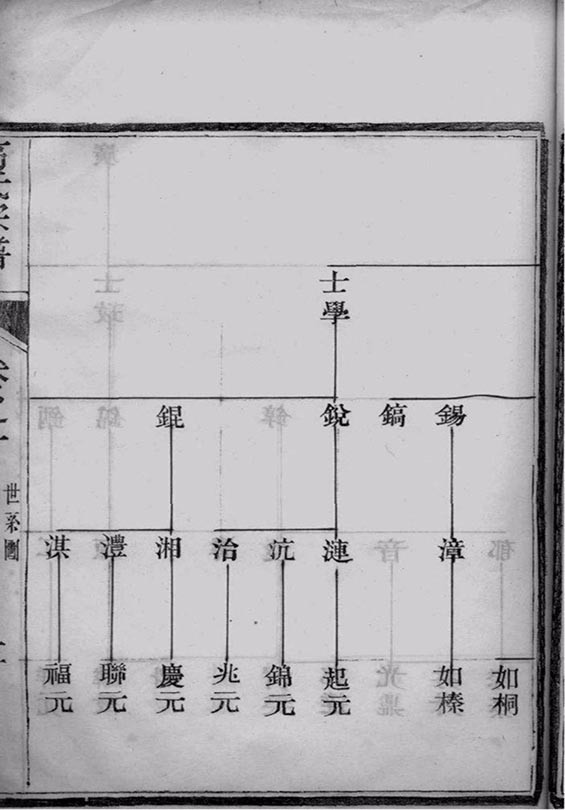 士學
錫
鎬
銳
錕
漳
漣
沆
洽
湘
澧
淇
如桐
如榛
起元
錦元
兆元
慶元
聯元
福元
世系圖